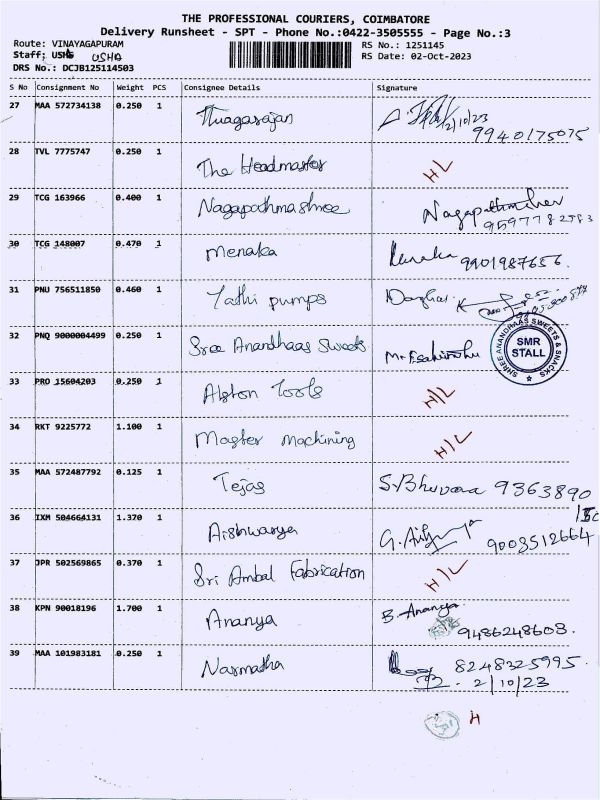 THE PROFESSIONAL COURIERS, COIMBATORE
Delivery Runsheet - SPT - Phone No.:0422-3505555 - Page No.:3
Route: VINAYAGAPURAM
RS No.: 1251145
Staff: USHA USHA
RS Date: 02-Oct-2023
DRS No.: DCJB125114503
S No Consignment No Weight PCS Consignee Details Signature
27 MAA 572734138 0.250 1 Thiagarajan 2/10/23
9940175075
28 TVL 7775747 0.250 1 The Headmaster H/L
29 TCG 163966 0.400 1 Nagapathmashree
9597782583
30 TCG 148007 0.470 1 Menaka Menaka 9901987656.
31 PNU 756511850 0.460 1 Yathi pumps
32 PNQ 9000004499 0.250 1 Sree Anandhaas Sweets
SHREE ANANDHAAS SWEETS & SNACKS
SMR
STALL
33 PRO 15604203 0.250 1 Alston Tools H/L
34 RKT 9225772 1.100 1 Master Machining H/L
35 MAA 572487792 0.125 1 Tejas S.Bhuvana 9363890
36 IXM 504664131 1.370 1 Aishwarya G.
9003512664
37 JPR 502569865 0.370 1 Sri Ambal Fabrication H/L
38 KPN 90018196 1.700 1 Ananya B. Ananya
9486248608.
39 MAA 101983181 0.250 1 Narmatha 8248325995.
2/10/23
H